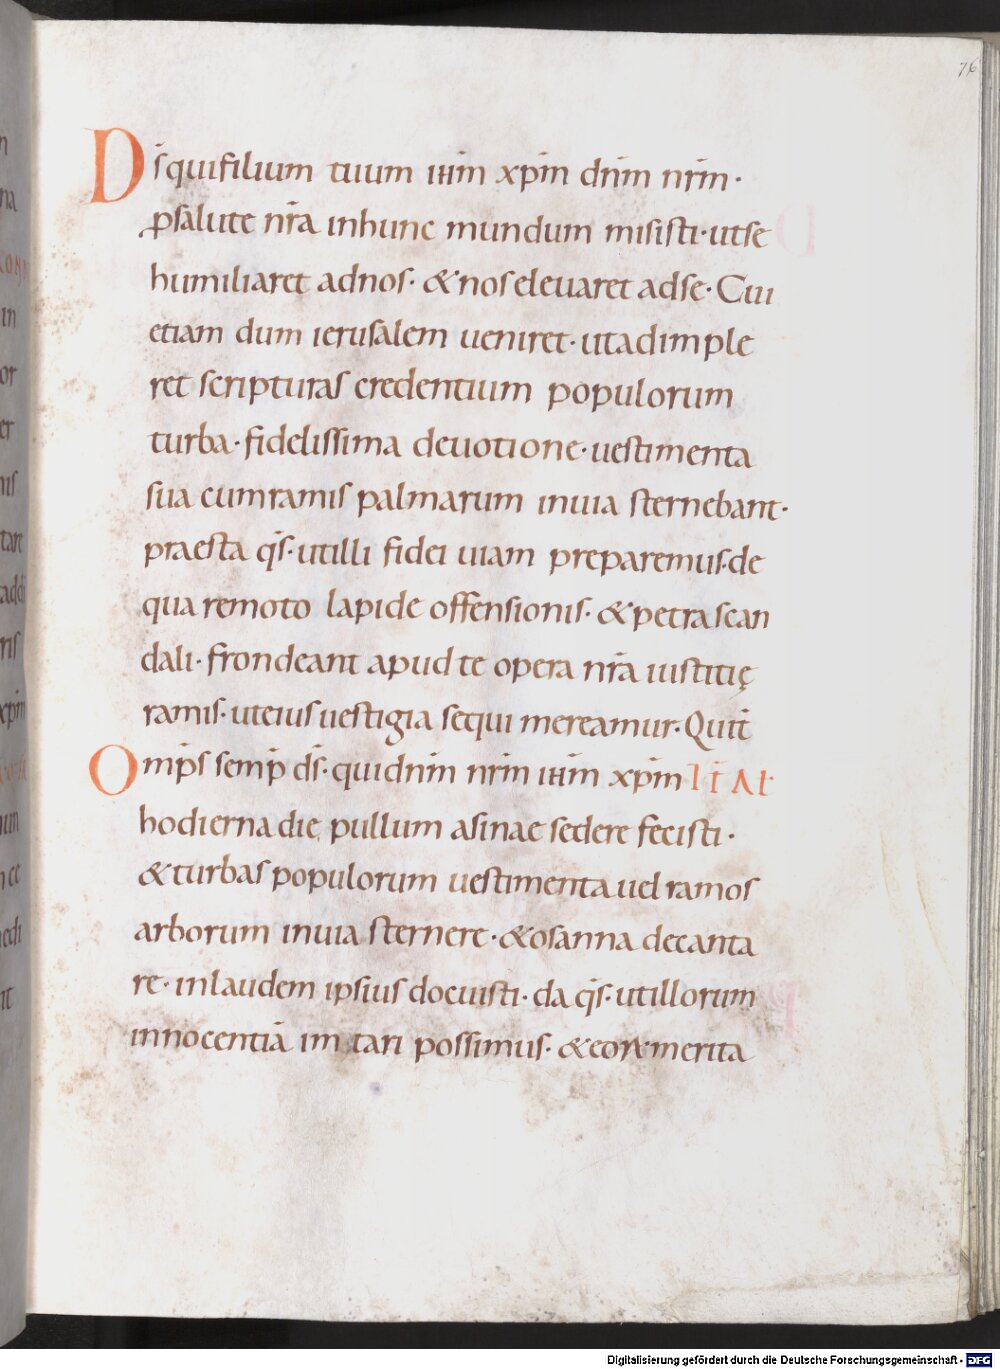 76
Ds̄ qui filium tuum ihm̄ xpm̄ dnm̄ nrm̄ ·
ꝓsalute nr̄a inhunc mundum misisti · utse
humiliaret adnos · & nos elevaret adse · Cui
etiam dum ierusalem ueniret · utadimple
ret scripturas credentium populorum
turba · fidelissima deuotione · uestimenta
sua cum ramis palmarum inuia sternebant ·
praesta qs̄ · utilli fidei uiam preparemus · de
qua remoto lapide offensionis · & petra scan
dali · frondeant apud te opera nr̄a iustitię
ramis · uteius uestigia sequi mereamur · Qui t̄
Omp̄s semp̄ ds̄ · qui dnm̄ nrm̄ ihm̄ xpm̄ IT̄ AƗ
hodierna die pullum asinae sedere fecisti ·
& turbas populorum uestimenta uel ramos
arborum inuia sternere · & osanna decanta
re · inlaudem ipsius docuisti · da qs̄ · utillorum
innocentiā imitari possimus · & eoꝝ merita
Digitalisierung gefördert durch die Deutsche Forschungsgemeinschaft - DFG